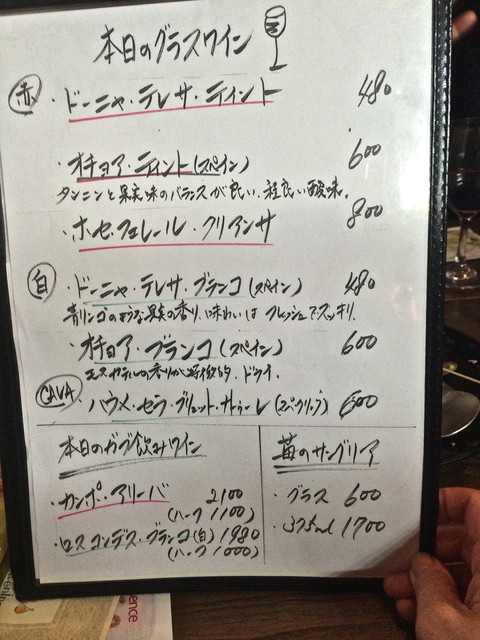 本日のグラスワイン
赤
・ドーニャ・テレサ・ティント 480
・オチョア・ティント(スペイン) 600
タンニンと果実味のバランスが良い、程良い酸味。
・ホセ・フェレール・クリアンサ 800
白
・ドーニャ・テレサ・ブランコ(スペイン) 480
青リンゴのような果実の香り、味わいはフレッシュでスッキリ。
・オチョア・ブランコ(スペイン) 600
モスカテルの香りが特徴的、ドライ。
CAVA
ハウメ・セラ・ブリュット・ナトゥーレ 600
本日のガブ飲みワイン
・カンポ・アリーバ 2100
(ハーフ 1100)
・ロスコンデス・ブランコ(白) 1980
(ハーフ 1000)
苺のサングリア
・グラス 600
・375ml 1700
ence